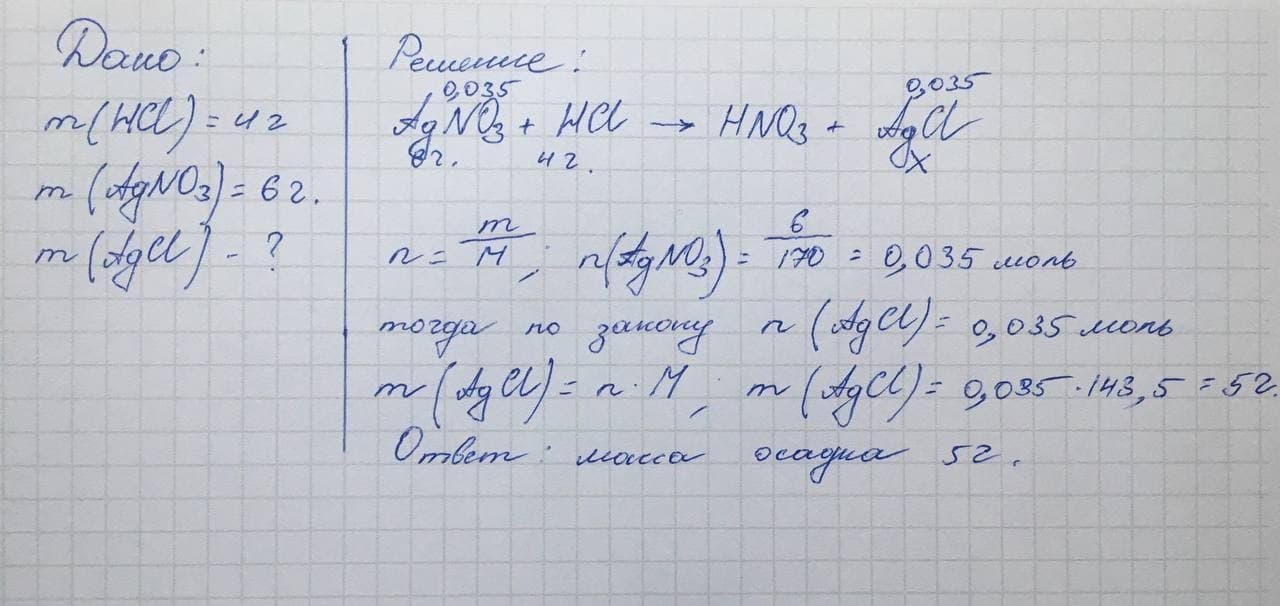 Дано:
m(HCl) = 4г
m(AgNO3) = 6г.
m(AgCl) - ?
Решение:
0,035 0,035
AgNO3 + HCl → HNO3 + AgCl
6г. 4г. x
n = m/M; n(AgNO3) = 6/170 = 0,035 моль
тогда по закону n(AgCl) = 0,035 моль
m(AgCl) = n·M; m(AgCl) = 0,035·143,5 = 5г.
Ответ: масса осадка 5г.